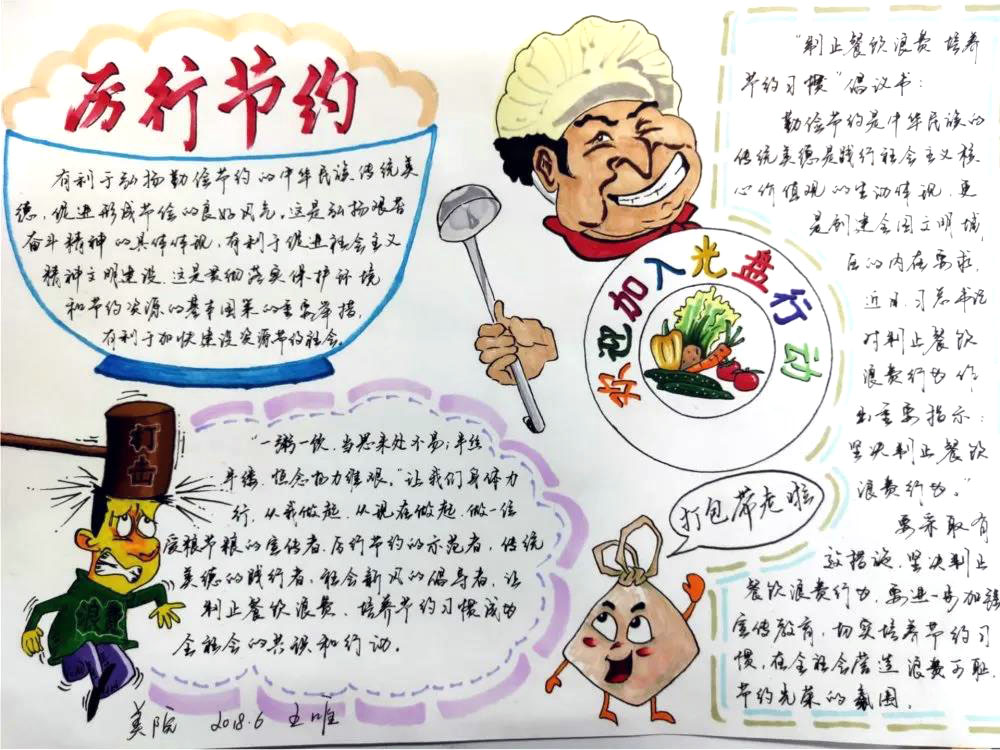 厉行节约
有利于弘扬勤俭节约的中华民族传统美
德，促进形成节俭的良好风气。这是弘扬艰苦
奋斗精神的具体体现，有利于促进社会主义
精神文明建设。这是贯彻落实保护环境
和节约资源的基本国策的重要举措，
有利于加快建设资源节约社会。
欢迎加入光盘行动
打击
浪费
"一粥一饭，当思来处不易；半丝
半缕，恒念物力维艰。"让我们身体力
行，从我做起，从现在做起，做一位
爱粮节粮的宣传者，厉行节约的示范者，传统
美德的践行者，社会新风的倡导者，让
制止餐饮浪费、培养节约习惯成为
全社会的共识和行动。
美院 2018.6
打包带走啦
"制止餐饮浪费 培养
节约习惯"倡议书：
勤俭节约是中华民族的
传统美德是践行社会主义核
心价值观的生动体现，更
是创建全国文明城
后的内在要求，
近日，习总书记
对制止餐饮
浪费行为作
出重要指示：
坚决制止餐饮
浪费行为。"
要采取有
效措施，坚决制止
餐饮浪费行为，要进一步加强
宣传教育，切实培养节约习
惯，在全社会营造浪费可耻
节约光荣的氛围。